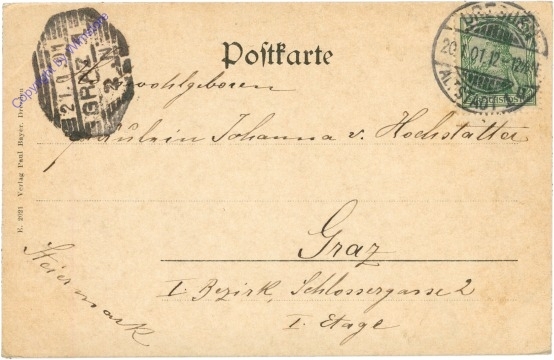 Postkarte
Hochwohlgeboren
Fräulein Johanna v. Hochstätter
Graz
I. Bezirk, Schlossergasse 2
I. Etage
Steiermark
E. 2021 Verlag Paul Bayer, Dresden
DRESDEN
ALTST.
GRAZ